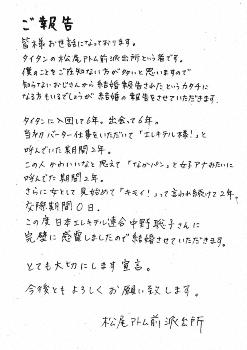 ご報告
皆様お世話になっております。
タイタンの松尾アトム前派出所という者です。
僕のことをご存知ない方が多いと思いますので
知らないおじさんから結婚報告されたというカタチに
なる方もいるでしょうが結婚の報告をさせていただきます。
タイタンに入団して6年。出会って6年。
当初バーター仕事をいただいて「エレキテル様!」と
呼んでいた期間2年。
この人かわいいなと思えて「なかパン」と女子アナみたいに
呼んでた期間2年。
さらに女として見始めて「キモイ!」って言われ続けて2年。
交際期間0日。
この度日本エレキテル連合中野聡子さんに
完璧に感電しましたので結婚させていただきます。
とても大切にします宣言。
今後ともよろしくお願い致します。
松尾アトム前派出所